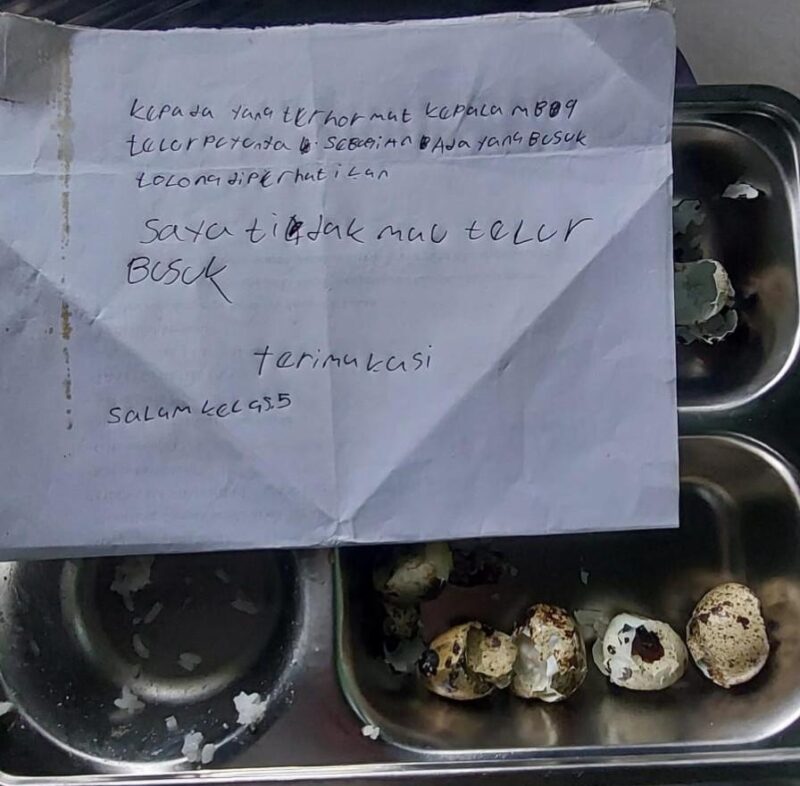 Kepada yang terhormat Kepala MBG
telur peyenta sebagian Ada yang Busuk
tolong diperhatikan
saya tidak mau telur
Busuk
terimakasi
Salam kelas.5